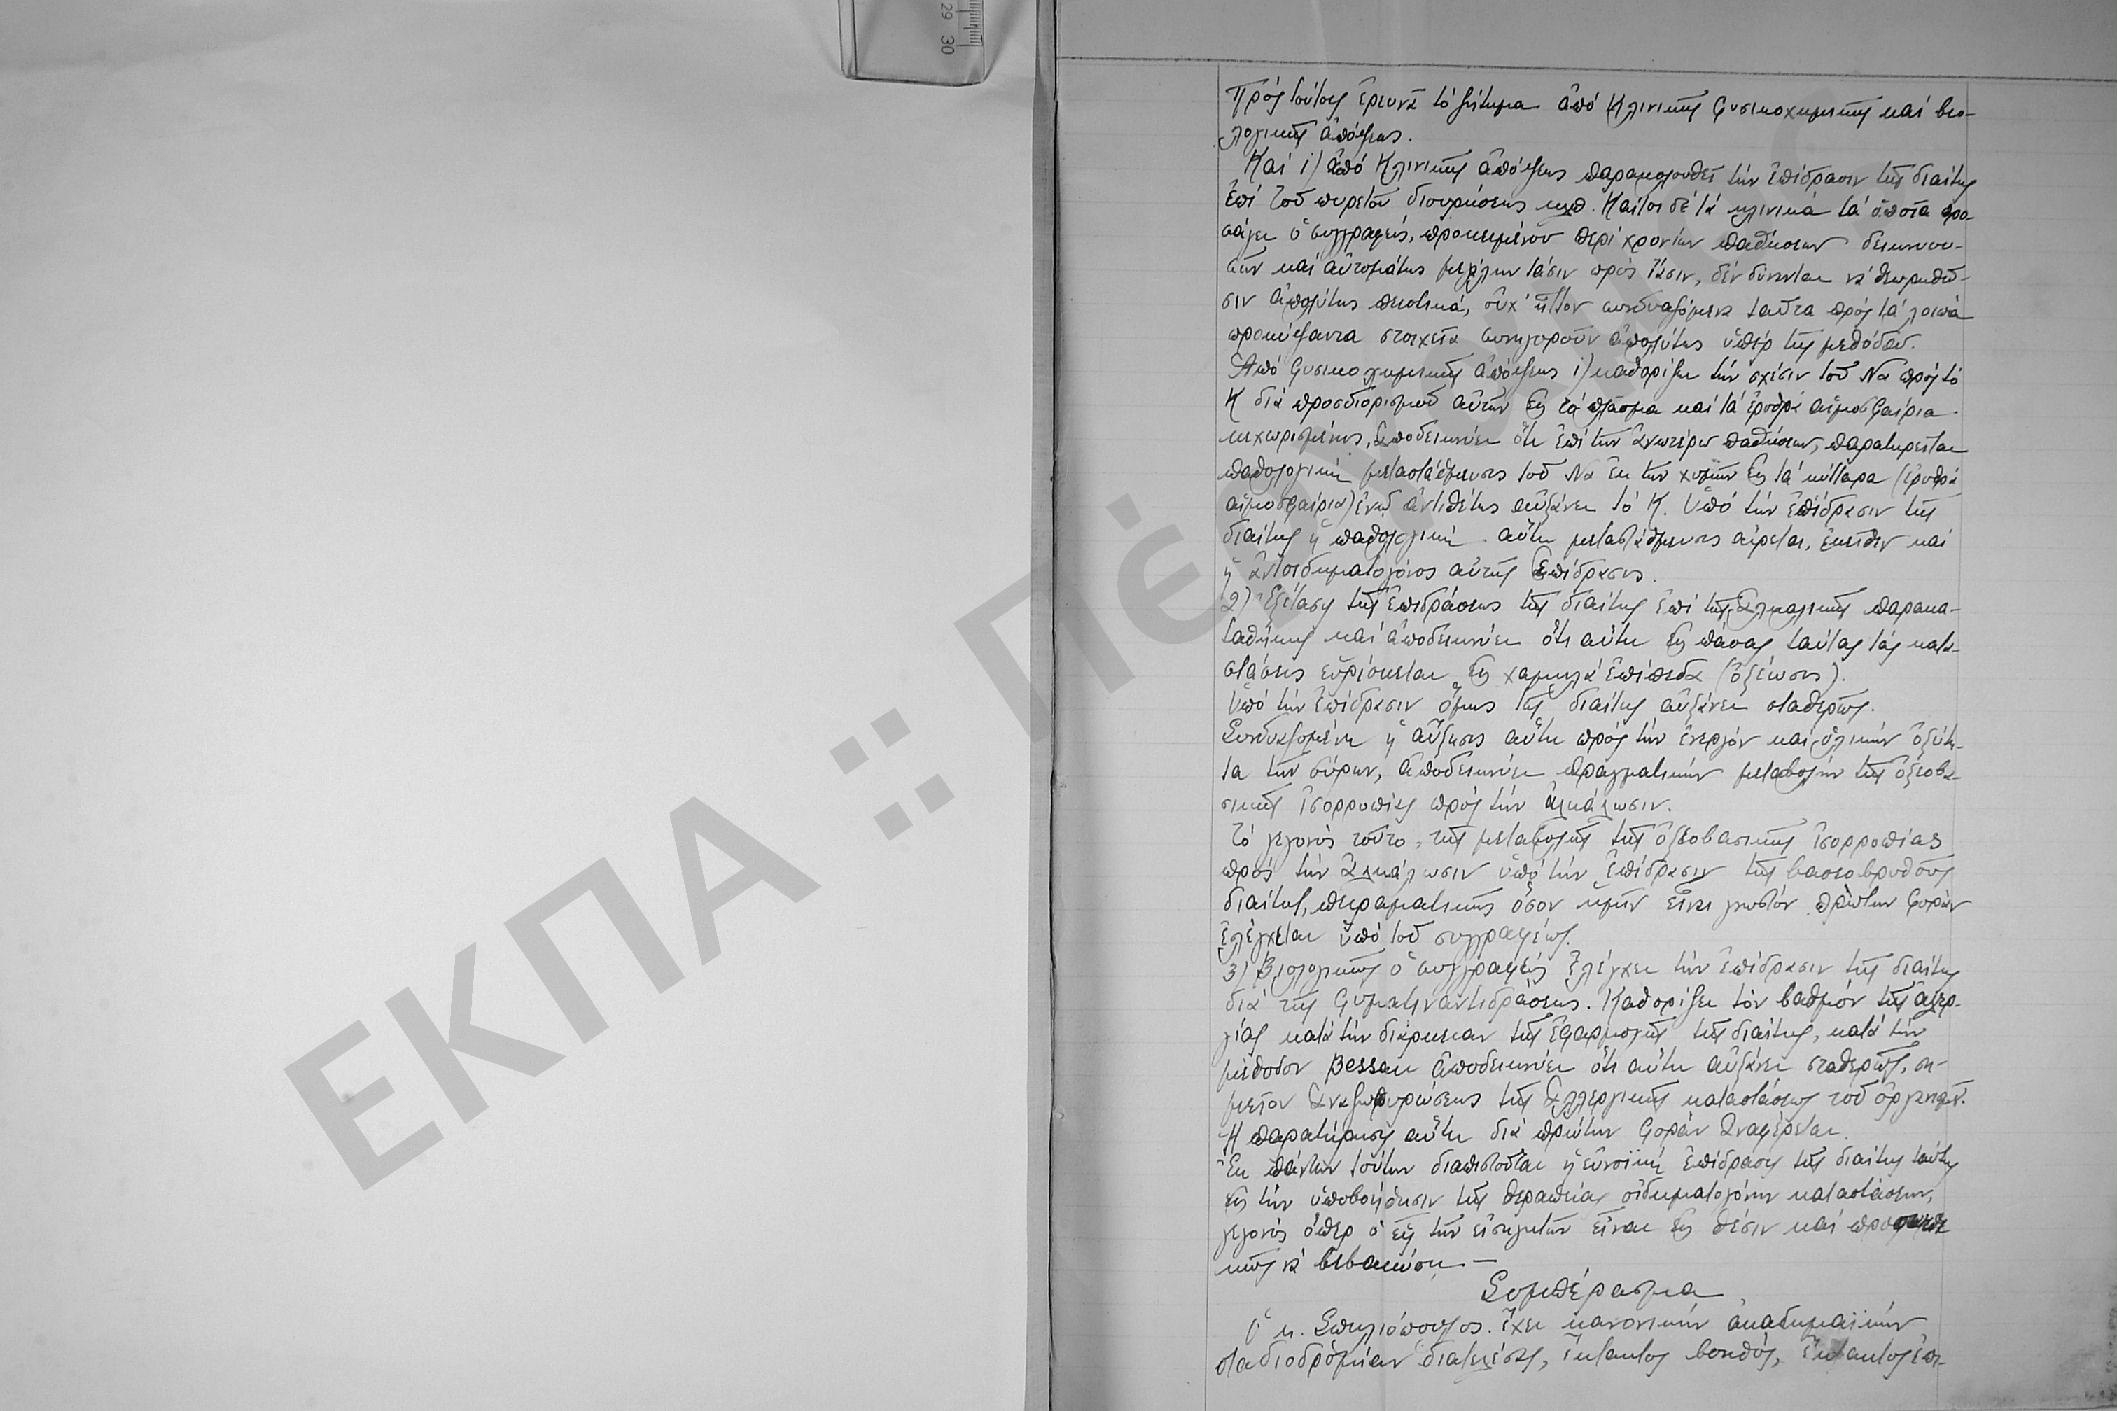 Πρὸς τοῦτοις ἐρευνᾷ τὸ ζήτημα ἀπὸ Κλινικῆς Φυσικοχημικῆς καὶ βιο-
λογικῆς ἀπόψεως.
Καὶ 1) ἀπὸ Κλινικῆς ἀπόψεως παρακολουθεῖ τὴν ἐπίδρασιν τῆς διαίτης
ἐπὶ τοῦ πυρετοῦ διουρήσεως κλπ. Καίτοι δὲ τὰ κλινικὰ τὰ ὁποῖα προ
σάγει ὁ συγγραφεύς, προκειμένου περὶ χρονίων παθήσεων δεικνυου-
σῶν καὶ αὐτομάτως μεγάλην τάσιν πρὸς ἴασιν, δὲν δύνανται νὰ θεωρηθῶ-
σιν ἀπολύτως πειστικά, οὐχ' ἧττον συνδυαζόμενα ταῦτα πρὸς τὰ λοιπὰ
προκύψαντα στοιχεῖα συνηγοροῦν ἀπολύτως ὑπὲρ τῆς μεθόδου.
Ἀπὸ Φυσικοχημικῆς ἀπόψεως 1) καθορίζει τὴν σχέσιν τοῦ Na πρὸς τὸ
K διὰ προσδιορισμοῦ αὐτῶν εἰς τὸ πλάσμα καὶ τὰ ἐρυθρὰ αἱμοσφαίρια
κεχωρισμένως, ἀποδεικνύει ὅτι ἐπὶ τῶν ἀνωτέρω παθήσεων, παρατηρεῖται
παθολογικὴ μεταστάθμευσις τοῦ Na ἐκ τῶν χυμῶν εἰς τὰ κύτταρα (ἐρυθρὰ
αἱμοσφαίρια) ἐνῷ ἀντιθέτως αὐξάνει τὸ K. Ὑπὸ τὴν ἐπίδρασιν τῆς
διαίτης ἡ παθολογικὴ αὕτη μεταστάθμευσις αἴρεται, ἐκεῖθεν καὶ
ἡ ἀντοιδηματογόνος αὐτῆς ἐπίδρασις.
2) Ἐξέτασις τῆς ἐπιδράσεως τῆς διαίτης ἐπὶ τῆς ἀλκαλικῆς παρακα-
ταθήκης καὶ ἀποδεικνύει ὅτι αὕτη εἰς πάσας ταύτας τὰς κατα-
στάσεις εὑρίσκεται εἰς χαμηλὰ ἐπίπεδα (ὀξέωσις).
Ὑπὸ τὴν ἐπίδρασιν ὅμως τῆς διαίτης αὐξάνει σταθερῶς.
Συνδυαζομένη ἡ αὔξησις αὕτη πρὸς τὴν ἐνεργὸν καὶ ὁλικὴν ὀξύτη-
τα τῶν οὔρων, ἀποδεικνύει πραγματικὴν μεταβολὴν τῆς ὀξεοβα-
σικῆς ἰσορροπίας πρὸς τὴν ἀλκάλωσιν.
Τὸ γεγονὸς τοῦτο, τῆς μεταβολῆς τῆς ὀξεοβασικῆς ἰσορροπίας
πρὸς τὴν ἀλκάλωσιν ὑπὸ τὴν ἐπίδρασιν τῆς βασεοβρυθοῦς
διαίτης, πειραματικῆς ὅσον ἡμῖν εἶναι γνωστὸν πρώτην φορὰν
ἐλέγχεται ὑπὸ τοῦ συγγραφέως.
3) Βιολογικῶς ὁ συγγραφεὺς ἐλέγχει τὴν ἐπίδρασιν τῆς διαίτης
διὰ τῆς Φυματιναντιδράσεως. Καθορίζει τὸν βαθμὸν τῆς ἀλλερ-
γίας κατὰ τὴν διάρκειαν τῆς ἐφαρμογῆς τῆς διαίτης, κατὰ τὴν
μέθοδον Bessau ἀποδεικνύει ὅτι αὕτη αὐξάνει σταθερῶς, ση-
μεῖον ἀναζωπυρώσεως τῆς ἀλλεργικῆς καταστάσεως τοῦ ὀργανισμ.
Ἡ παρατήρησις αὕτη διὰ πρώτην φορὰν ἀναφέρεται.
Ἐκ πάντων τούτων διαπιστοῦται ἡ εὐνοϊκὴ ἐπίδρασις τῆς διαίτης ταύτης
εἰς τὴν ὑποβοήθησιν τῆς θεραπείας οἰδηματογόνων καταστάσεων,
γεγονὸς ὅπερ ὁ εἷς τῶν εἰσηγητῶν εἶναι εἰς θέσιν καὶ
κῶς νὰ βεβαιώσῃ.—
Συμπέρασμα
Ὁ κ. Σπηλιόπουλος ἔχει κανονικὴν ἀκαδημαϊκὴν
σταδιοδρομίαν διατελέσας, ἔκτακτος βοηθός, ἔκτακτος ἐπι-
ΕΚΠΑ :: Πέργαμος
29 30